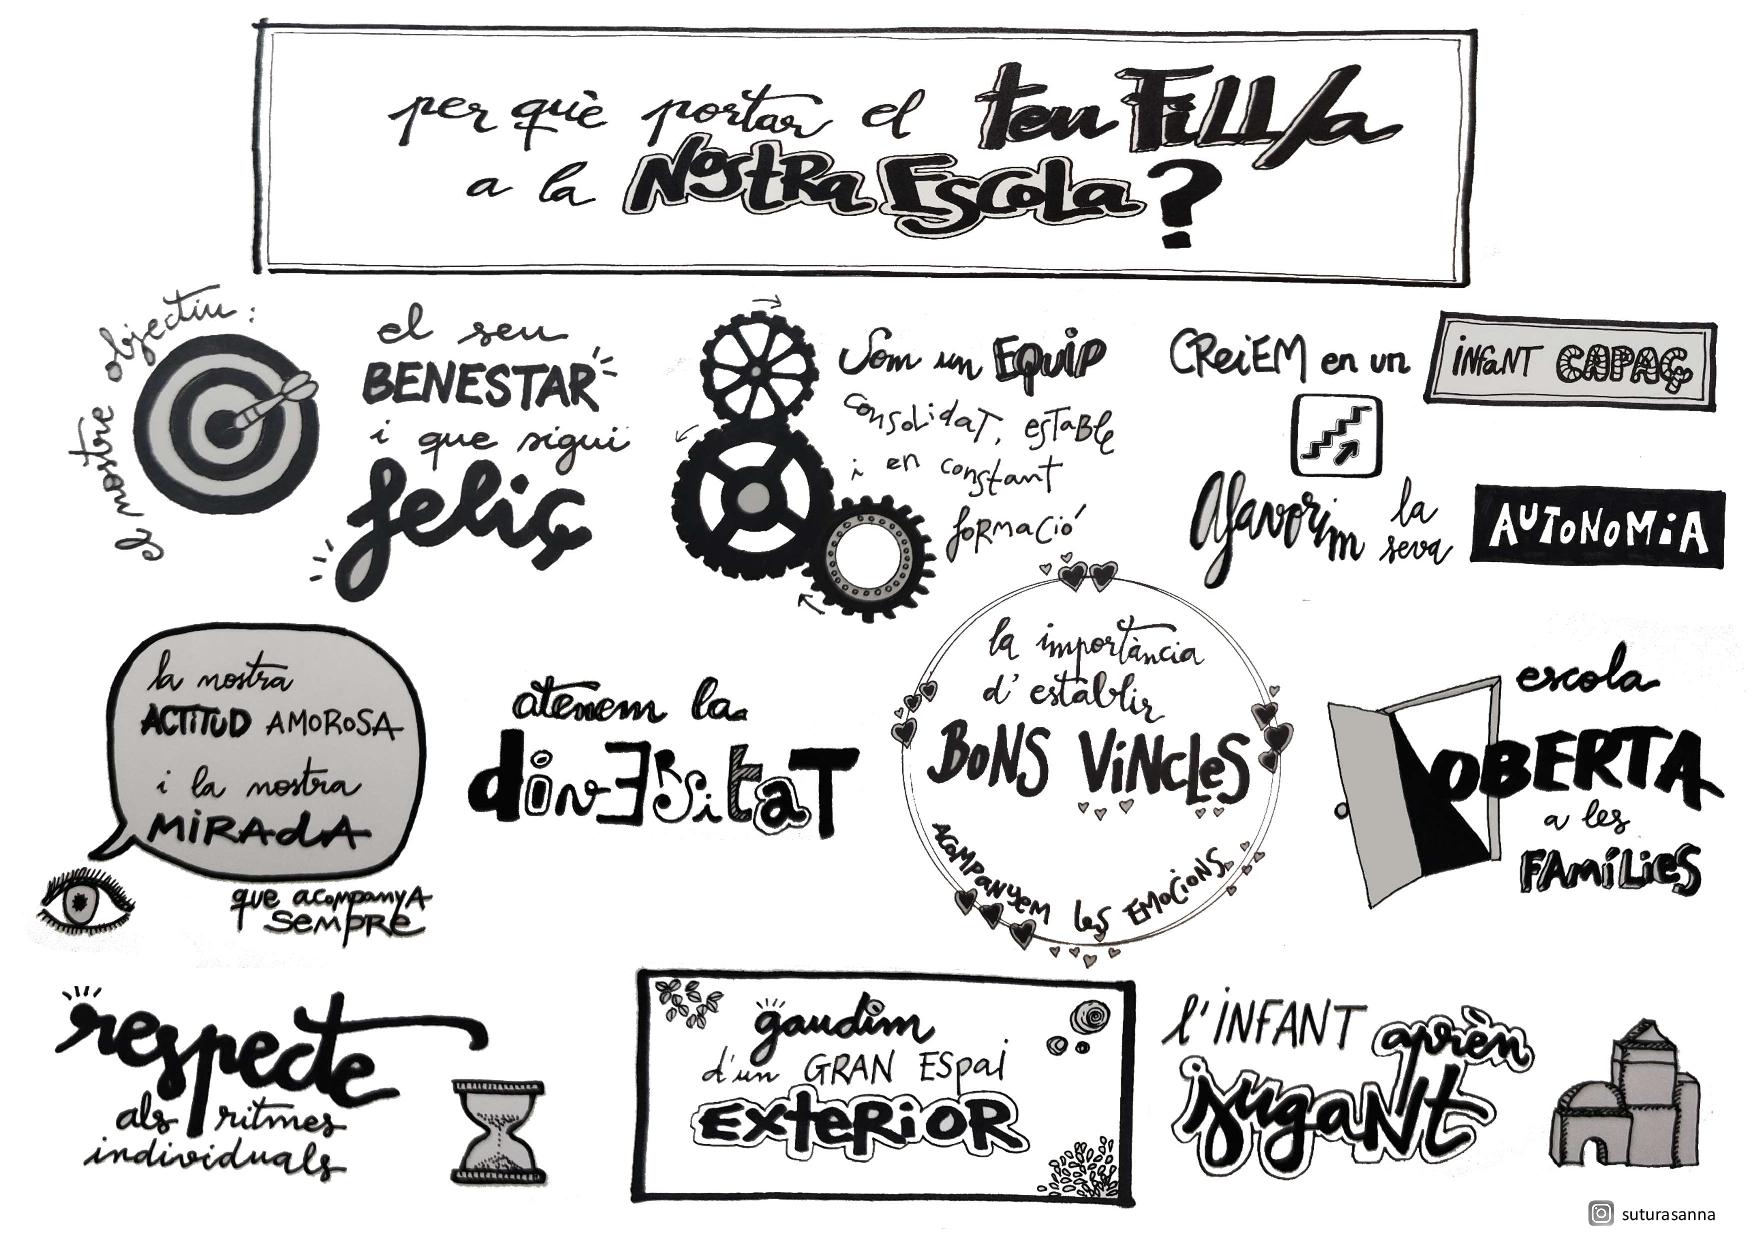 per què portar el teu Fill/a
a la Nostra Escola?
el nostre objectiu:
el seu
BENESTAR
i que sigui
feliç
Som un EQUIP
consolidat, estable
i en constant
formació
CREIEM en un
infant CAPAÇ
Afavorim la seva
AUTONOMIA
la nostra
ACTITUD AMOROSA
i la nostra
MIRADA
que acompanya
SEMPRE
atenem la
diversitat
la importància
d'establir
BONS VINCLES
Acompanyem les EMOCIONS
escola
OBERTA
a les
FAMÍLIES
respecte
als ritmes
individuals
gaudim
d'un GRAN Espai
EXTERIOR
l'INFANT aprèn
jugant
suturasanna